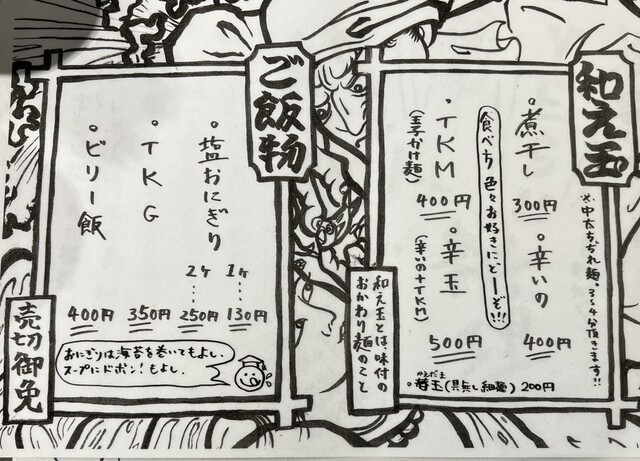 和え玉
※中太ちぢれ麺。3〜4分頂きます!!
・煮干し
300円
・辛いの
400円
食べ方色々お好きにどーぞ!!!
・TKM
(玉子かけ麺)
400円
・辛玉
(辛いの+TKM)
500円
かえだま
・替玉(具無し細麺)200円
和え玉とは、味付の
おかわり麺のこと
ご飯物
・塩おにぎり
1ケ…130円
2ケ…250円
・TKG
350円
・ビリー飯
400円
おにぎりは海苔を巻いてもよし、
スープにドボン!もよし。
売切御免